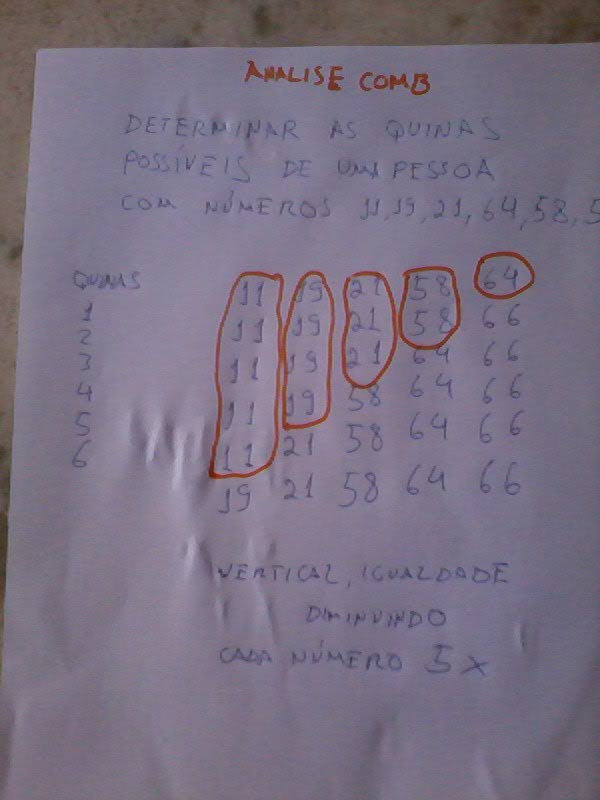 ANALISE COMB
DETERMINAR AS QUINAS
POSSÍVEIS DE UMA PESSOA
COM NÚMEROS 11, 19, 21, 64, 58, 5
QUINAS
1
2
3
4
5
6
11 19 21 58 64
11 19 21 58 66
11 19 21 64 66
11 19 58 64 66
11 21 58 64 66
19 21 58 64 66
VERTICAL, IGUALDADE
DIMINUINDO
CADA NÚMERO 5X